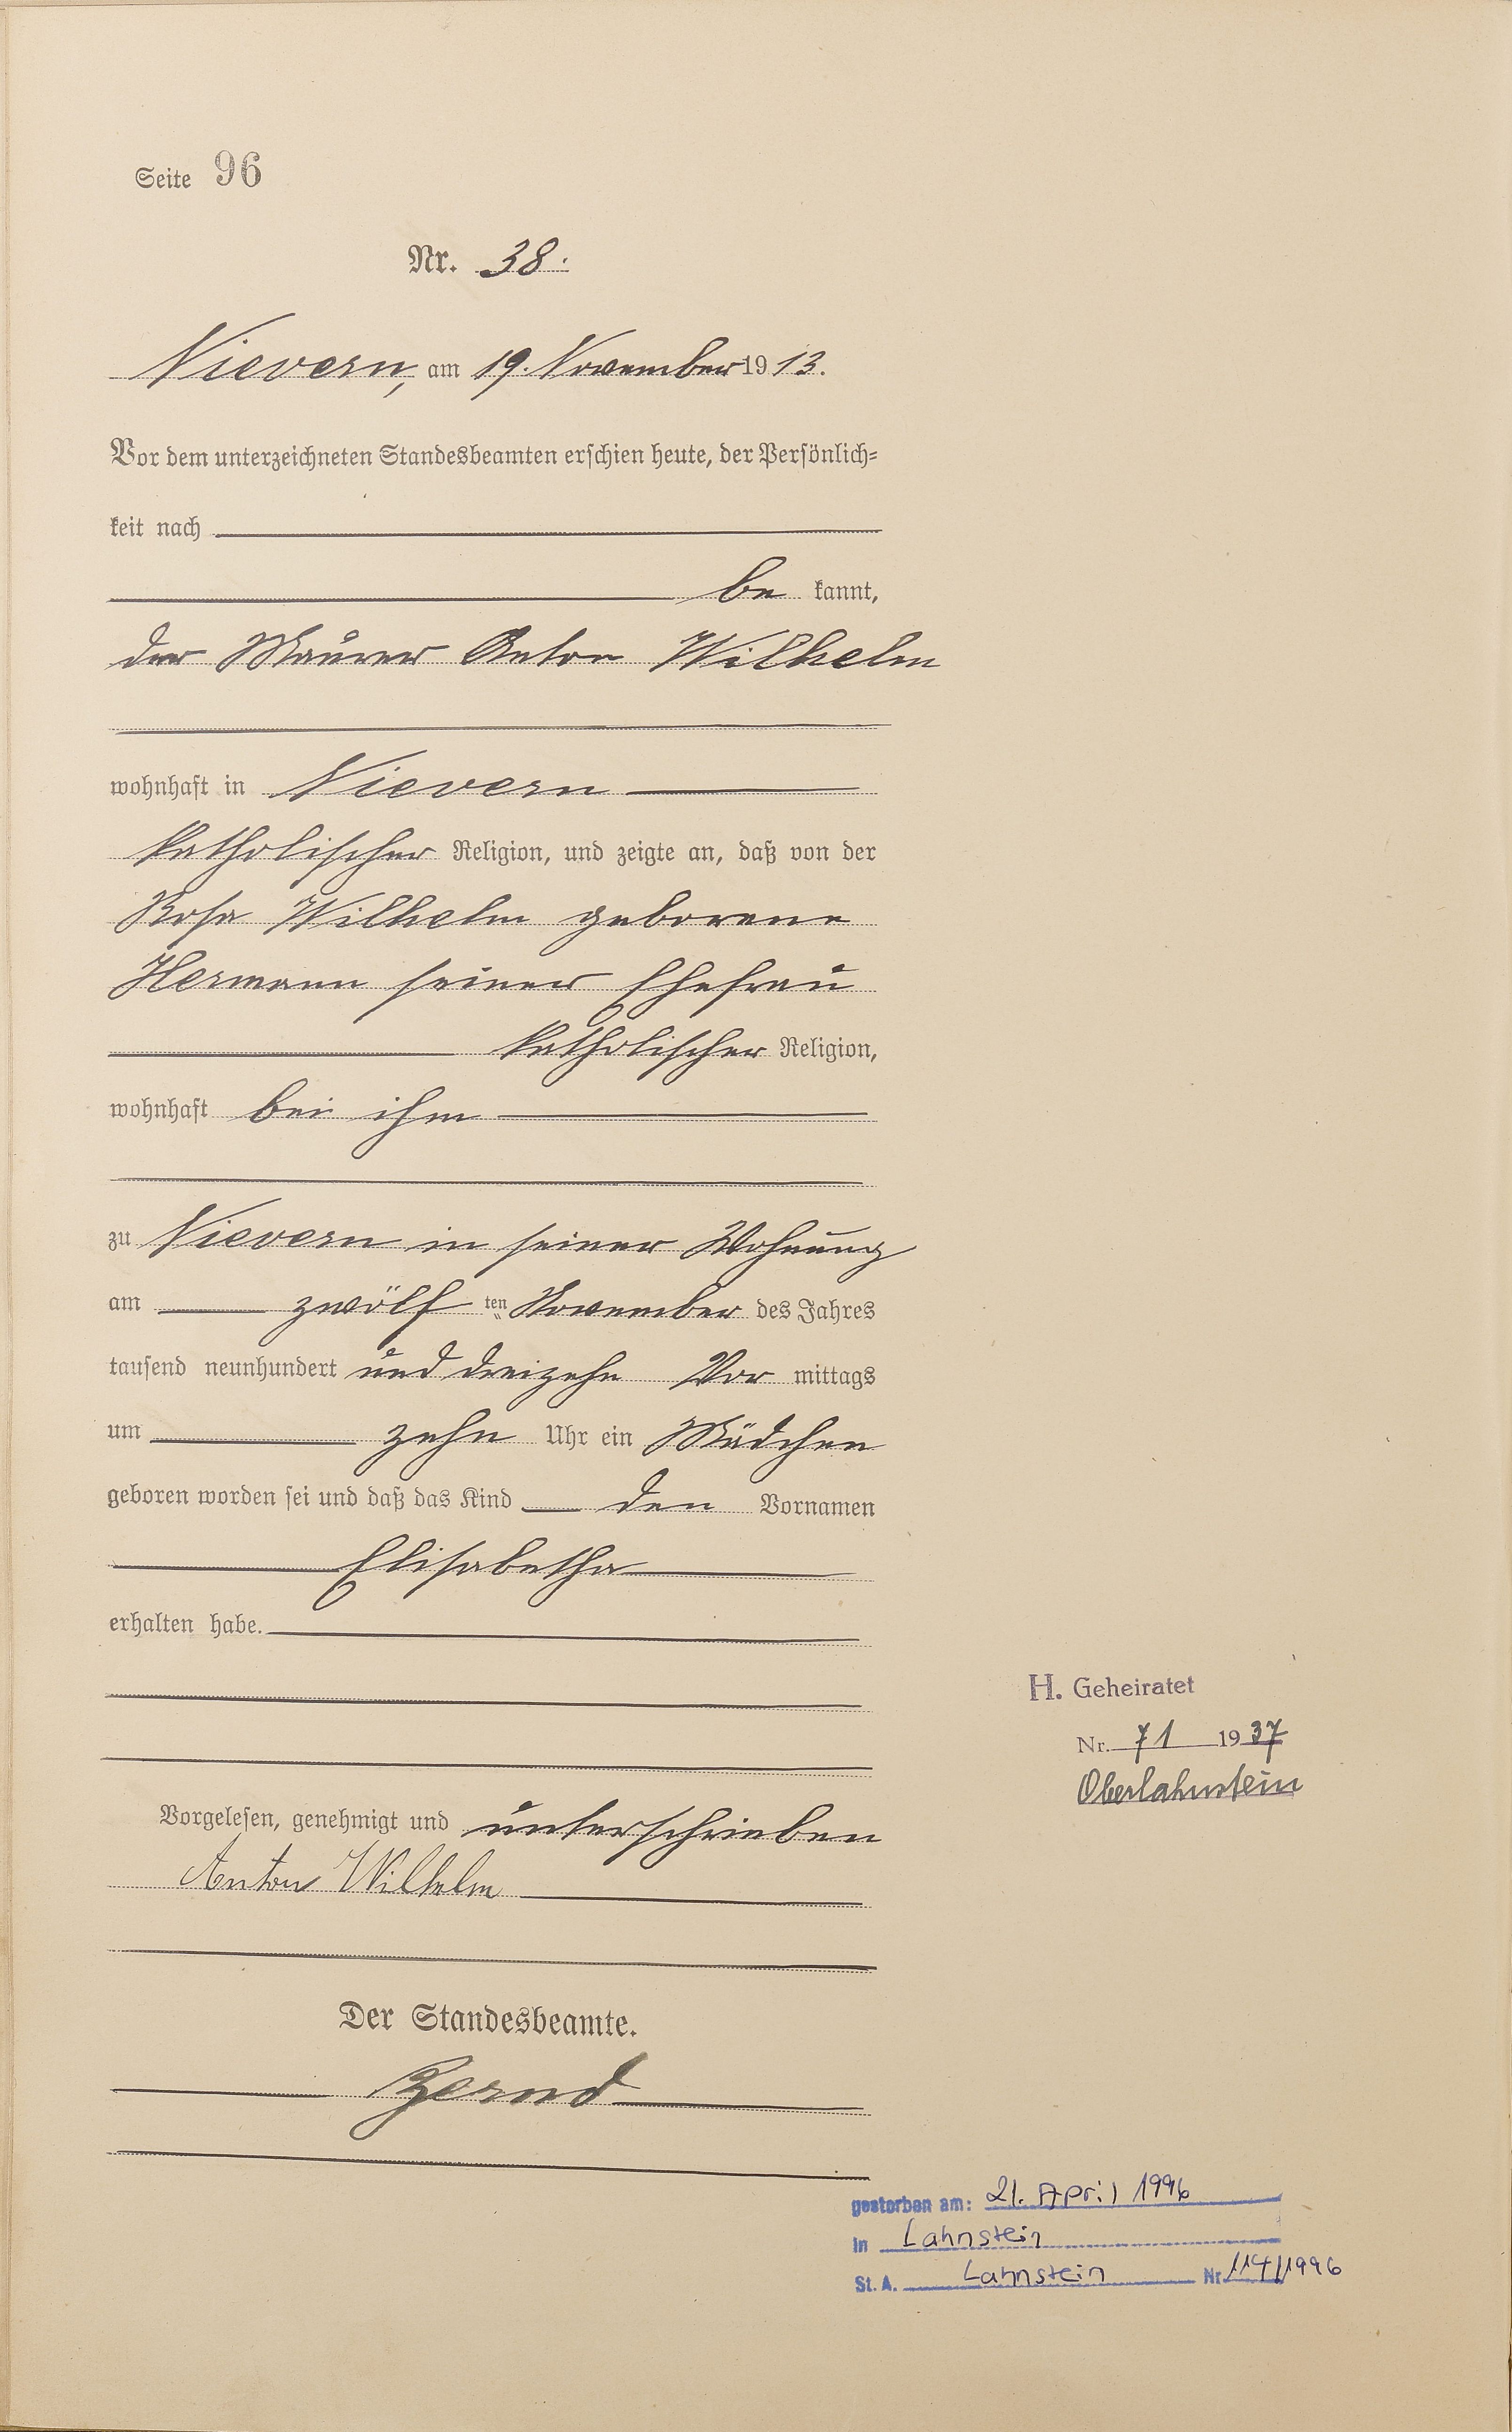 Seite 96
Nr. 38.
Nievern, am 19. November 1913.
Vor dem unterzeichneten Standesbeamten erschien heute, der Persönlich-
keit nach
be kannt,
der Maurer Anton Wilhelm
wohnhaft in Nievern
katholischer Religion, und zeigte an, daß von der
Rosa Wilhelm geborene
Hermann seiner Ehefrau
katholischer Religion,
wohnhaft bei ihm
zu Nievern in seiner Wohnung
am zwölf ten November des Jahres
tausend neunhundert und dreizehn Vor mittags
um zehn Uhr ein Mädchen
geboren worden sei und daß das Kind den Vornamen
Elisabetha
erhalten habe.
H. Geheiratet
Nr. 71 1937
Oberlahnstein
Vorgelesen, genehmigt und unterschrieben
Anton Wilhelm
Der Standesbeamte.
gestorben am: 21. April 1996
in Lahnstein
St. A. Lahnstein Nr 114/1996